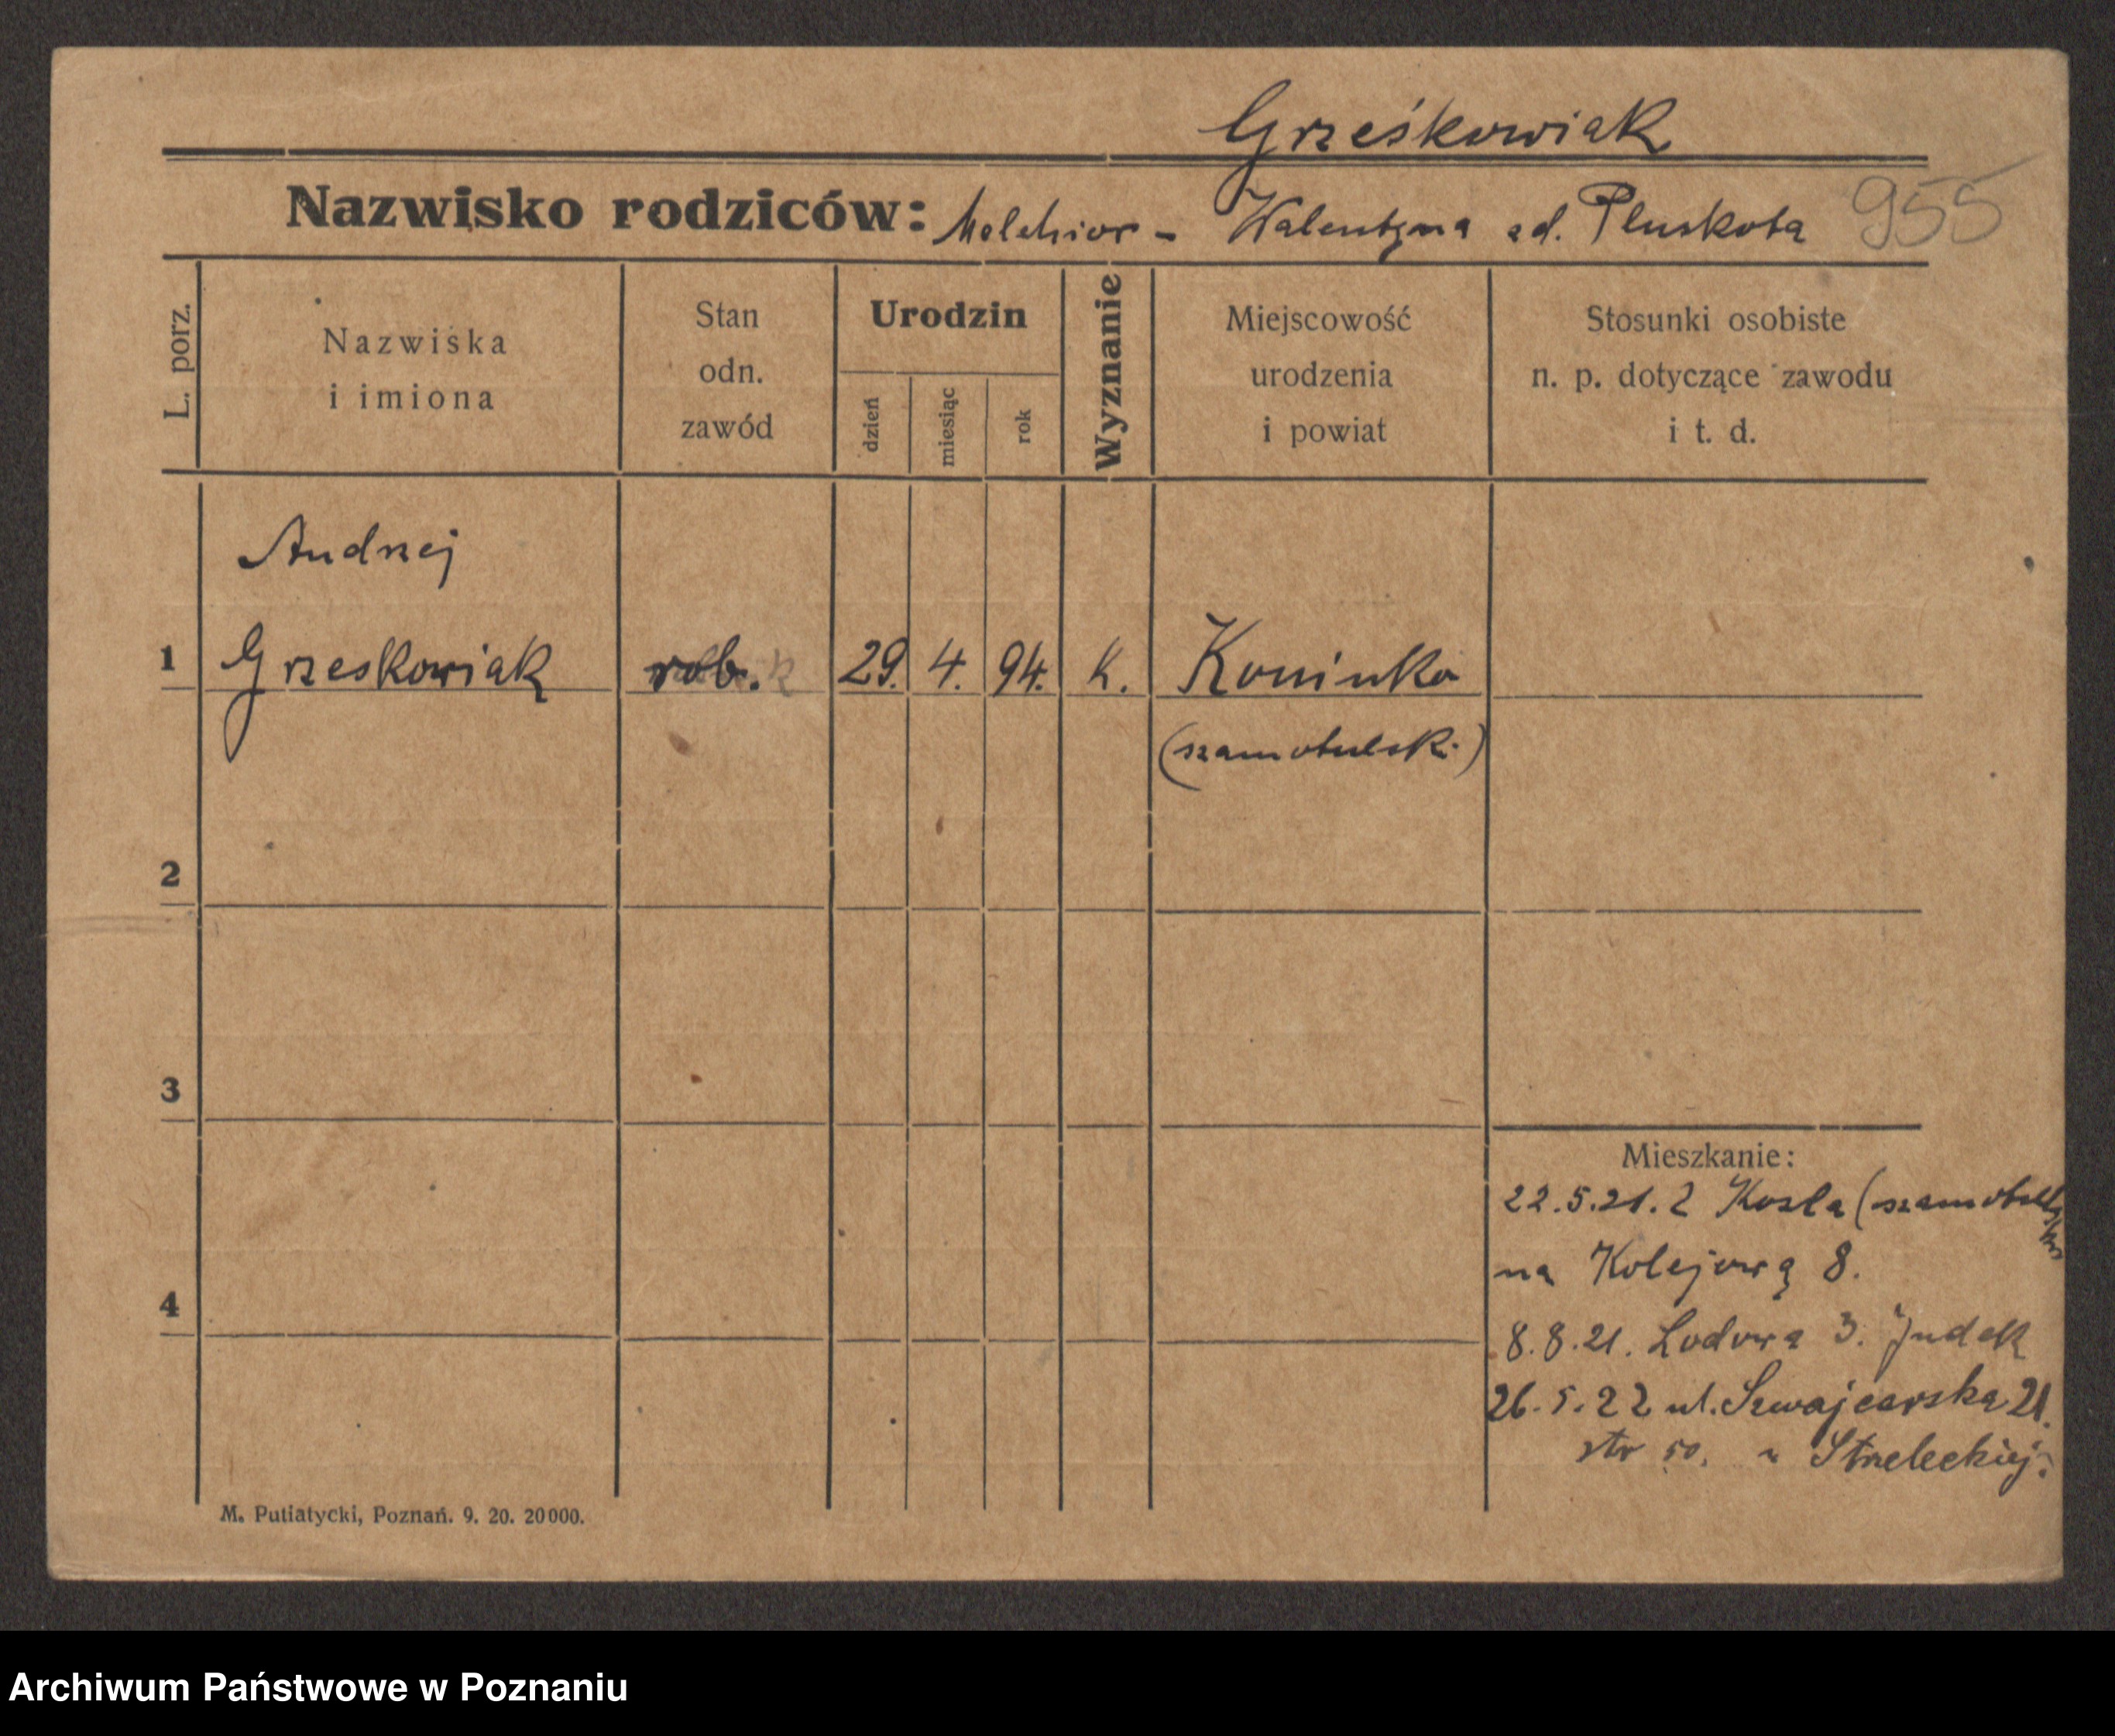 Grześkowiak
Nazwisko rodziców: Melchior - Walentyna zd. Pluskota 955
L. porz.
Nazwiska
i imiona
Stan
odn.
zawód
Urodzin
dzień
miesiąc
rok
Wyznanie
Miejscowość
urodzenia
i powiat
Stosunki osobiste
n. p. dotyczące zawodu
i t. d.
Andrzej
1 Grzeskowiak rob. 29. 4. 94. k. Koninko
(szamotulsk.)
2
3
4
Mieszkanie:
22.5.21. z Kosla (szamotulsk
na Kolejową 8.
8.8.21. Lodowa 3. Judek
26.5.22 ul. Szwajcarska 21.
str 50. Strzeleckiej.
M. Putiatycki, Poznań. 9. 20. 20000.
Archiwum Państwowe w Poznaniu